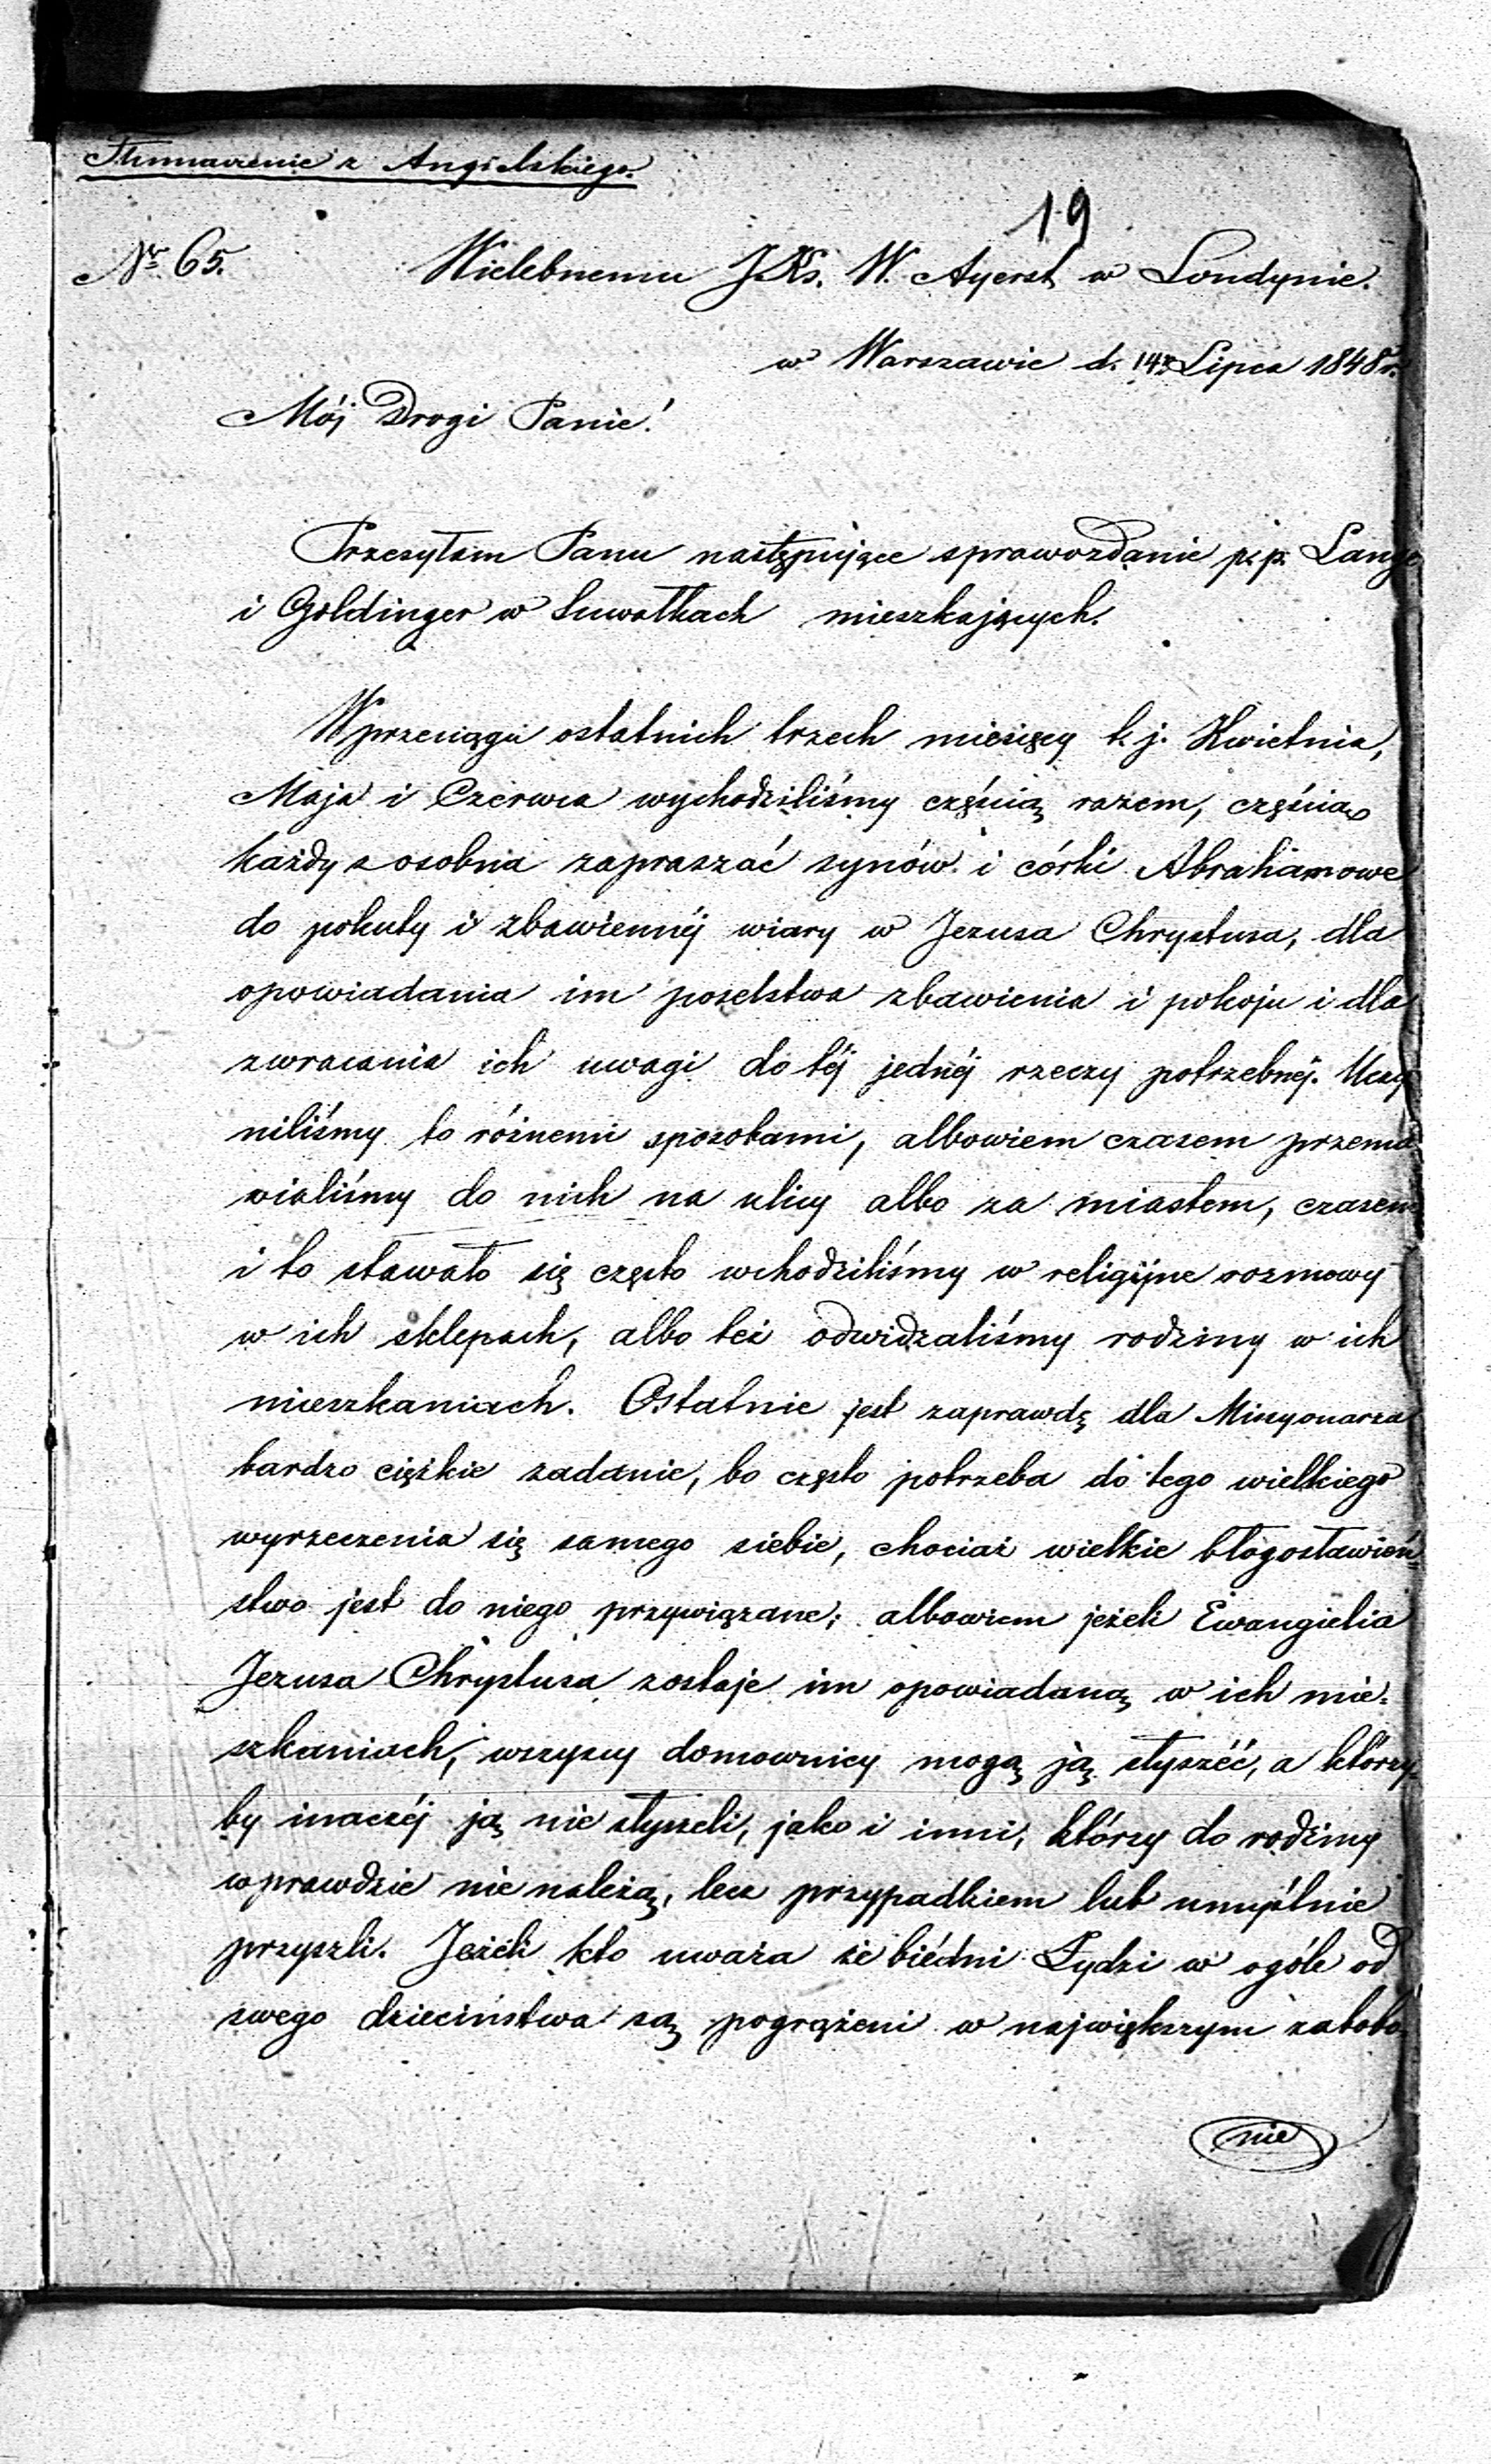 Tłumaczenie z Angielskiego.
19
Nr 65. Wielebnemu JKs. W. Ayerst w Londynie.
w Warszawie d. 14 Lipca 1848 r.
Mój Drogi Panie!
Przesyłam Panu następujące sprawozdanie p.p. Lange
i Goldinger w Suwałkach mieszkających.
W przeciągu ostatnich trzech miesięcy t. j. Kwietnia,
Maja i Czerwca wychodziliśmy częścią razem, częścią
każdy z osobna zapraszać synów i córki Abrahamowe
do pokuty i zbawiennéj wiary w Jezusa Chrystusa, dla
opowiadania im poselstwa zbawienia i pokoju i dla
zwracania ich uwagi do téj jednéj rzeczy potrzebnéj. Uczy
niliśmy to różnemi sposobami, albowiem czasem przema
wialiśmy do nich na ulicy albo za miastem, czasem
i to stawało się często wchodziliśmy w religijne rozmowy
w ich sklepach, albo też odwidzaliśmy rodziny w ich
mieszkaniach. Ostatnie jest zaprawdę dla Missyonarza
bardzo ciężkie zadanie, bo często potrzeba do tego wielkiego
wyrzeczenia się samego siebie, chociaż wielkie błogosławień=
stwo jest do niego przywiązane; albowiem jeżeli Ewangielia
Jezusa Chrystusa zostaje im opowiadaną w ich mie=
szkaniach, wszyscy domownicy mogą ją słyszéć, a którzy=
by inaczéj ją nie słyszeli, jako i inni, którzy do rodziny
wprawdzie nie należą, lecz przypadkiem lub umyślnie
przyszli. Jeżeli kto uważa że biédni Żydzi w ogóle od
swego dzieciństwa są pogrążeni w największym zabobo=
nie